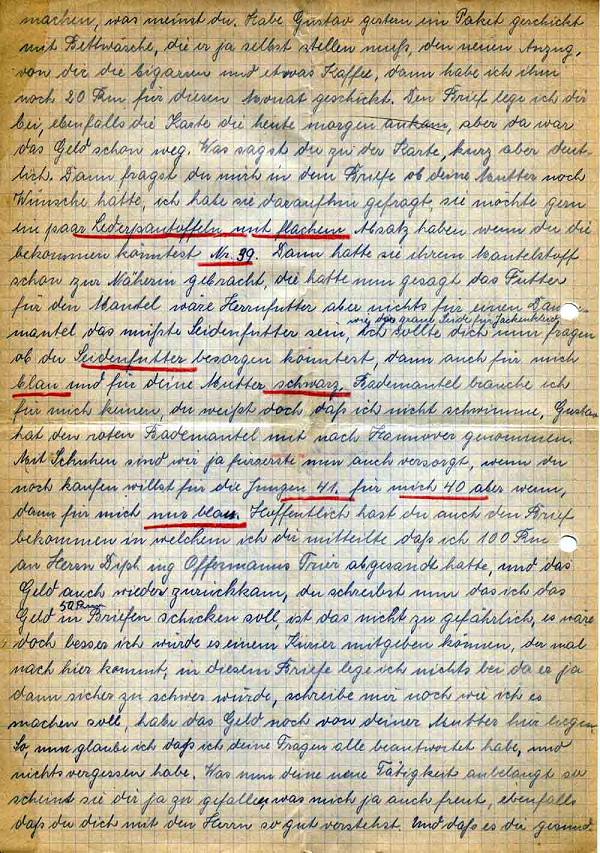 machen, was meinst du. Habe Gustav gestern ein Paket geschickt
mit Bettwäsche, die er ja selbst stellen muß, den neuen Anzug,
von dir die Cigarren und etwas Kaffee, dann habe ich ihm
noch 20 Rm, für diesen Monat geschickt. Den Brief lege ich dir
bei, ebenfalls die Karte die heute morgen ankam, aber da war
das Geld schon weg. Was sagst du zu der Karte, kurz aber deut-
lich. Dann fragst du mich in dem Briefe ob deine Mutter noch
Wünsche hatte, ich habe sie daraufhin gefragt, sie möchte gern
ein paar Lederpantoffeln mit flachem Absatz haben wenn du die
bekommen könntest Nr. 39. Dann hatte sie ihrem Mantelstoff
schon zur Näherin gebracht, die hatte nun gesagt das Futter
für den Mantel wäre Herrnfutter aber nichts für einen Dam
wie das graue Seide für Jackenkleid
mantel das müßte Seidenfutter sein, ich sollte dich nun fragen
ob du Seidenfutter besorgen könntest, dann auch für mich
blau und für deine Mutter schwarz. Bademantel brauche ich
für mich keinen, du weißt doch daß ich nicht schwimme, Gustav
hat den roten Bademantel mit nach Hannover genommen.
Mit Schuhen sind wir ja fürserste nun auch versorgt, wenn du
noch kaufen willst für die Jungen 41. für mich 40 aber wenn,
dann für mich nur blau. Hoffentlich hast du auch den Brief
bekommen in welchem ich dir mitteilte daß ich 100 Rm
an Herrn Dipl. ing Offermanns Trier abgesandt hatte, und das
Geld auch wieder zurückkam, du schreibst nun das ich das
50 Rm
Geld in Briefen schicken soll, ist das nicht zu gefährlich, es wäre
doch besser ich würde es einem Kurier mitgeben können, der mal
nach hier kommt, in diesem Briefe lege ich nichts bei da es ja
dann sicher zu schwer würde, schreibe mir noch wie ich es
machen soll, habe das Geld noch von deiner Mutter hier liegen.
So, nun glaube ich daß ich deine Fragen alle beantwortet habe, und
nichts vergessen habe. Was nun deine neue Tätigkeit anbelangt so
scheint sie dir ja zu gefallen, was mich ja auch freut, ebenfalls
daß du dich mit den Herrn so gut verstehst. Und daß es dir gesund